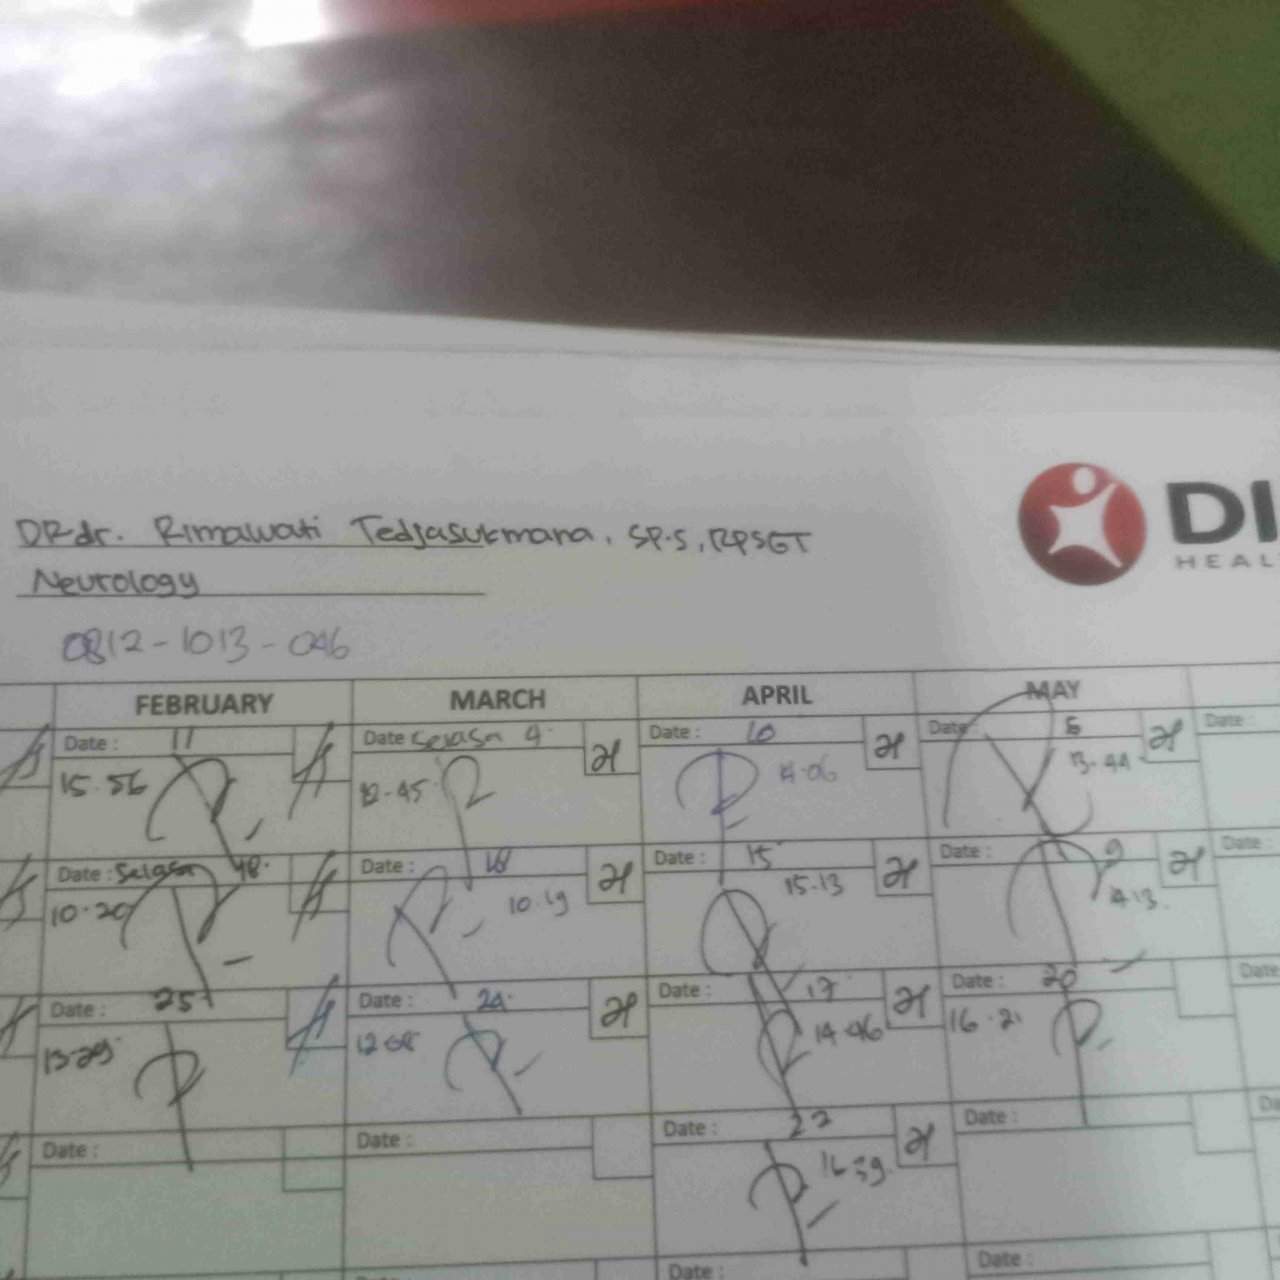 DR.dr. Rimawati Tedjasukmana, SP.S, RPSGT
Neurology
0812-1013-046
DI
HEAL
FEBRUARY MARCH APRIL MAY
Date: 11 Date Selasa 4 Date: 10 Date: 6 Date:
15.56 12-45 13-44
Date: Selasa 18. Date: 18 Date: 15 Date: 9 Date:
10.20 10.19 15.13
Date: 25 Date: 24 Date: 17 Date: 20 Date:
13-29 14-46 16.21
Date: Date: Date: 22 Date: Da
16 59
Date: Date: